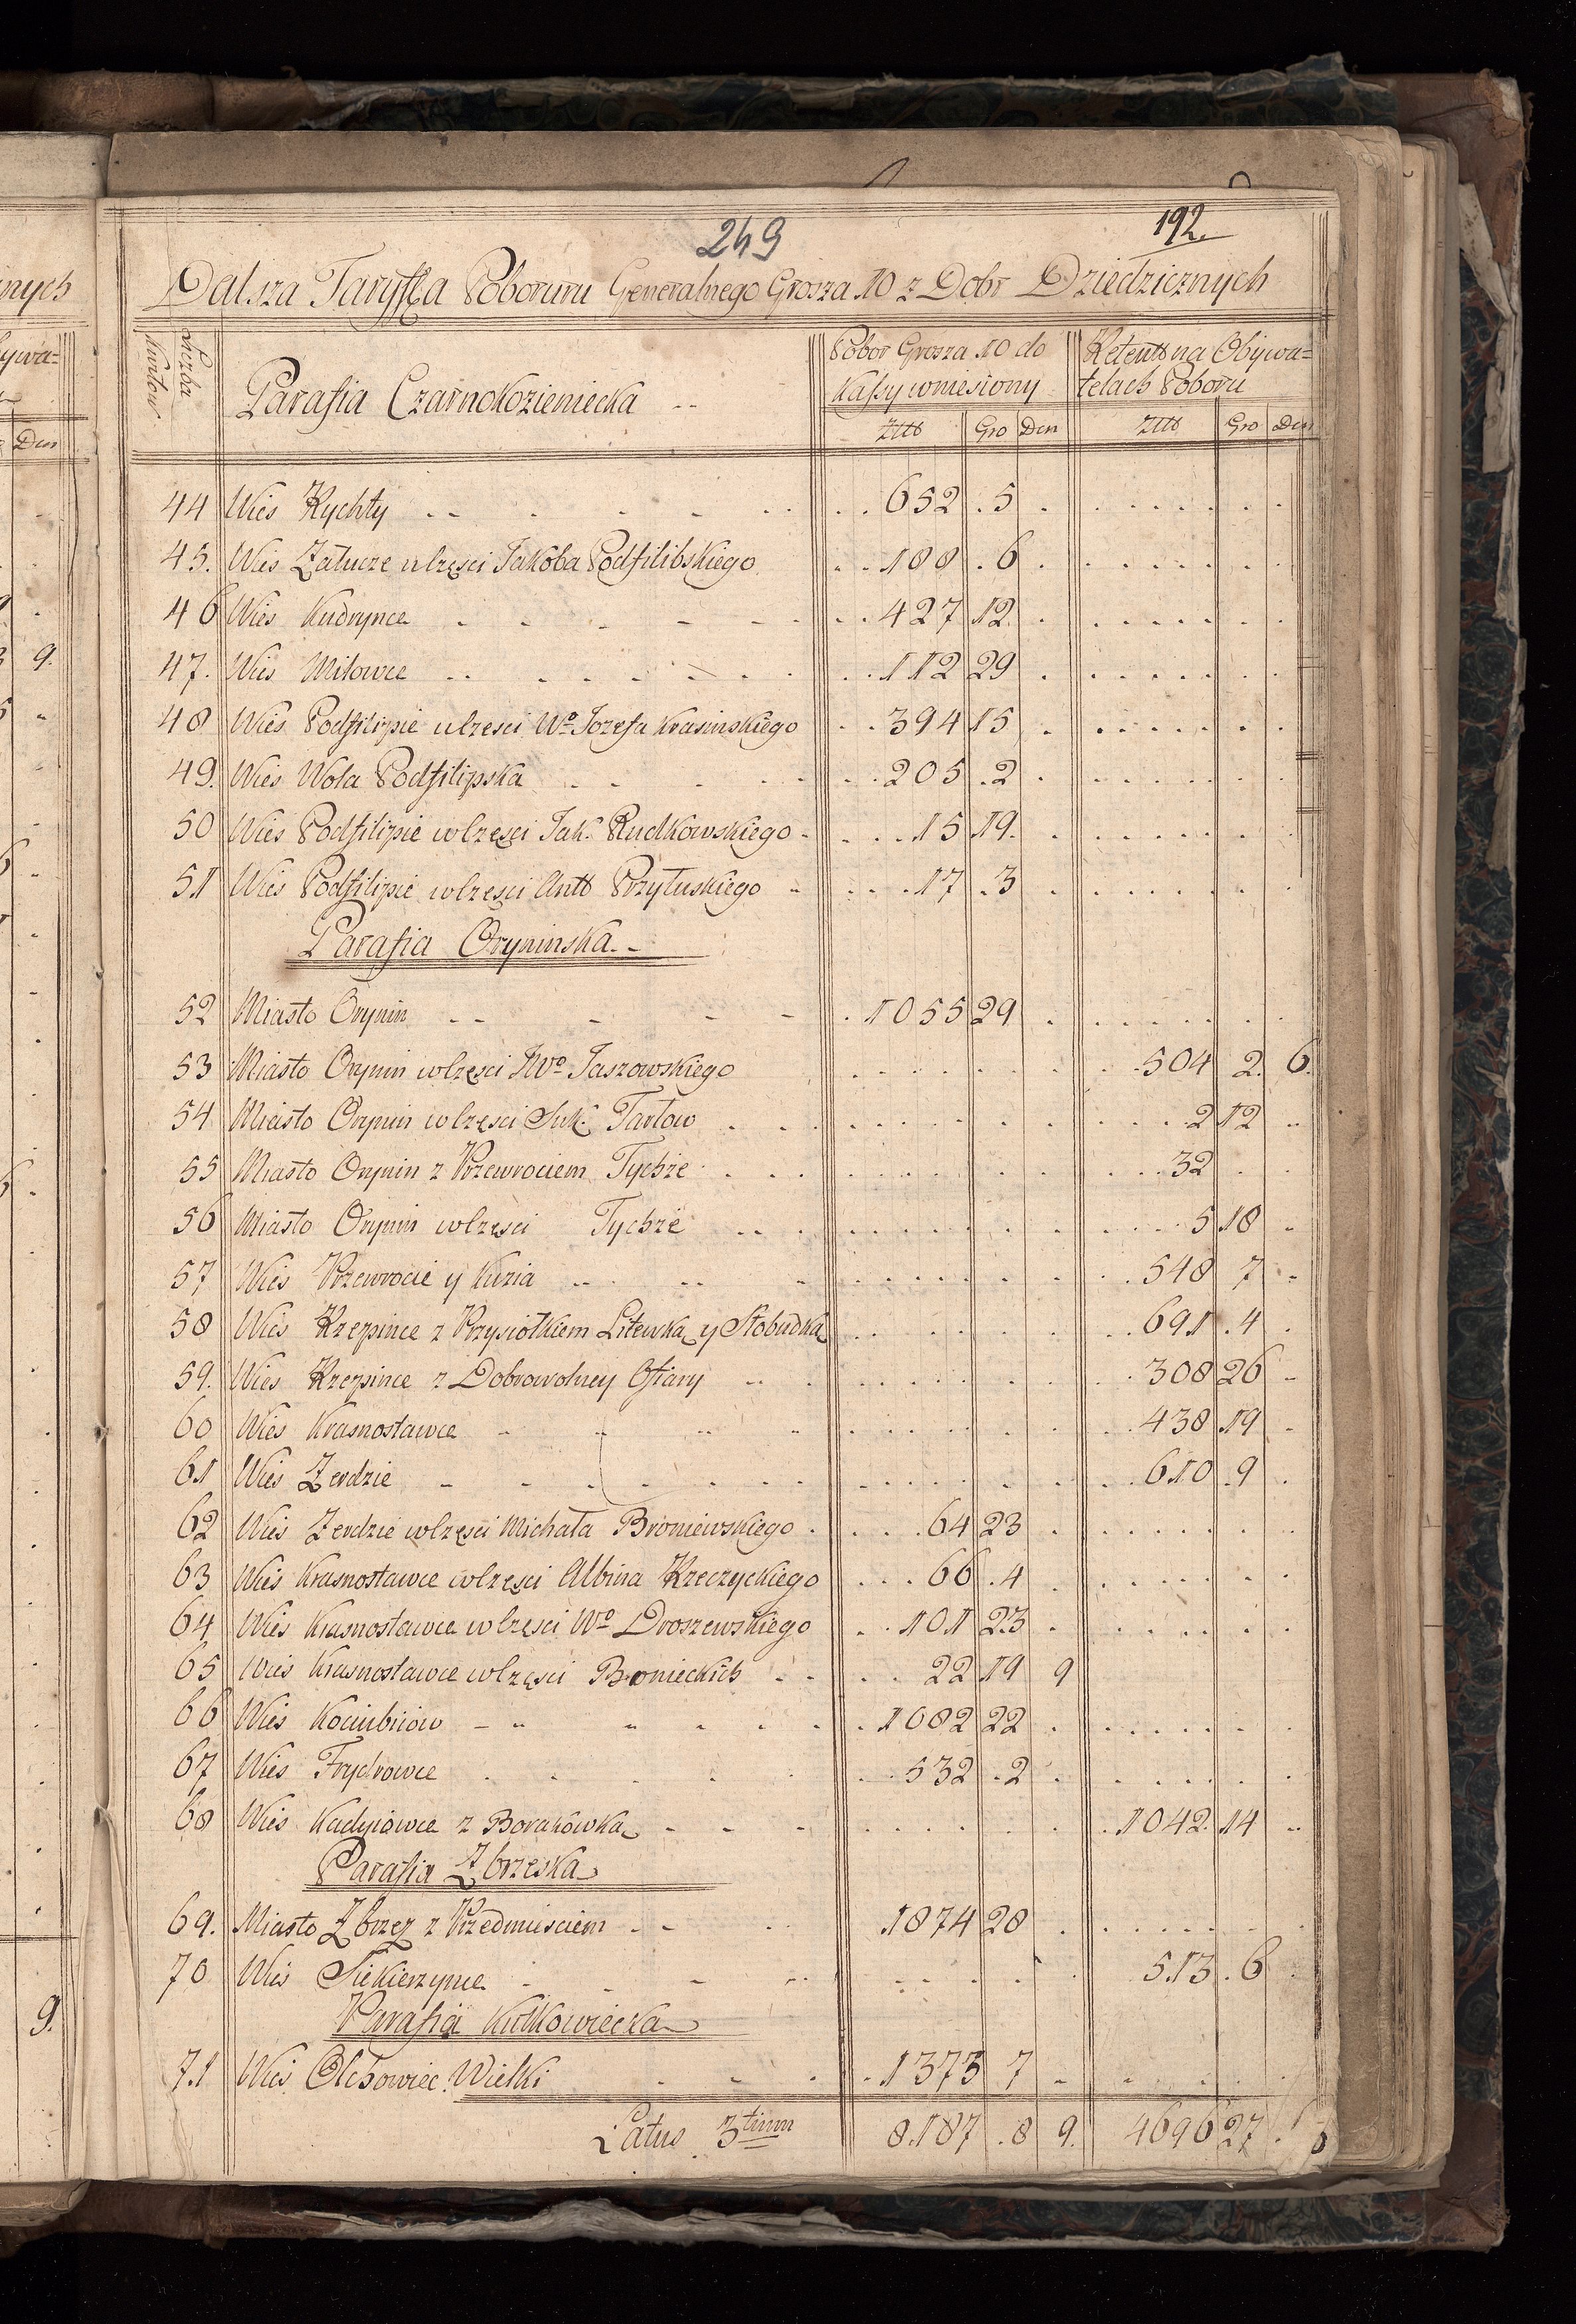 249
192.
Dalsza Taryffa Poboruru Generalnego Grosza 10 z Dobr Dziedzicznych
Liczba Kwitow
Parafia Czarnokozieniecka
Pobor Grosza 10 do Kassy wniesiony
Retenta na Obywa= telach Poboru
Złł Gro Den Złł Gro Den
44 Wies Rychty 652 . 5
45. Wies Załucze w częsci Jakoba Podfilibskiego 188 . 6
46 Wies Kudrynce 427 12.
47. Wies Miłowce 112 29
48 Wies Podfilipie w częsci Wo Jozefa Krasinskiego 394 15
49. Wies Wola Podfilipska 205 . 2
50 Wies Podfilipie w częsci Jak. Rudkowskiego 15 19.
51 Wies Podfilipie w częsci Antt Przyłuskiego 17 . 3
Parafia Oryninska
52 Miasto Orynin 1055 29
53 Miasto Orynin w częsci Jwo Jaszowskiego 504 2. 6.
54 Miasto Orynin w częsci Suk. Tarłow 2 12
55 Miasto Orynin z Przewrociem Tychże 32
56 Miasto Orynin w częsci Tychże 5 18
57 Wies Przewrocie y Kuzia 548 7
58 Wies Rzepince z Przysiołkiem Litewką y Słobudką 691 . 4
59. Wies Rzepince z Dobrowolney Ofiary 308 26
60 Wies Krasnostawce 438 19
61 Wies Zerdzie 610 . 9
62 Wies Zerdzie w częsci Michała Broniewskiego 64 23
63 Wies Krasnostawce w częsci Albina Rzeczyckiego 66 . 4
64 Wies Krasnostawce w częsci Wo Droszewskiego 101 23
65 Wies Krasnostawce w częsci Bronieckich 22 19 9
66 Wies Kociubiiow 1082 22
67 Wies Frydrowce 532 . 2
68 Wies Kadyiowce z Borakowką 1042. 14
Parafia Zbrzeska
69. Miasto Zbrzez z Przedmiesciem 1874 28
70 Wies Siekierzynce 513 . 6
Parafia Kutkowiecka
71 Wies Olchowiec Wielki 1373 7
Latus 3tium 8187 . 8 9. 4696 27